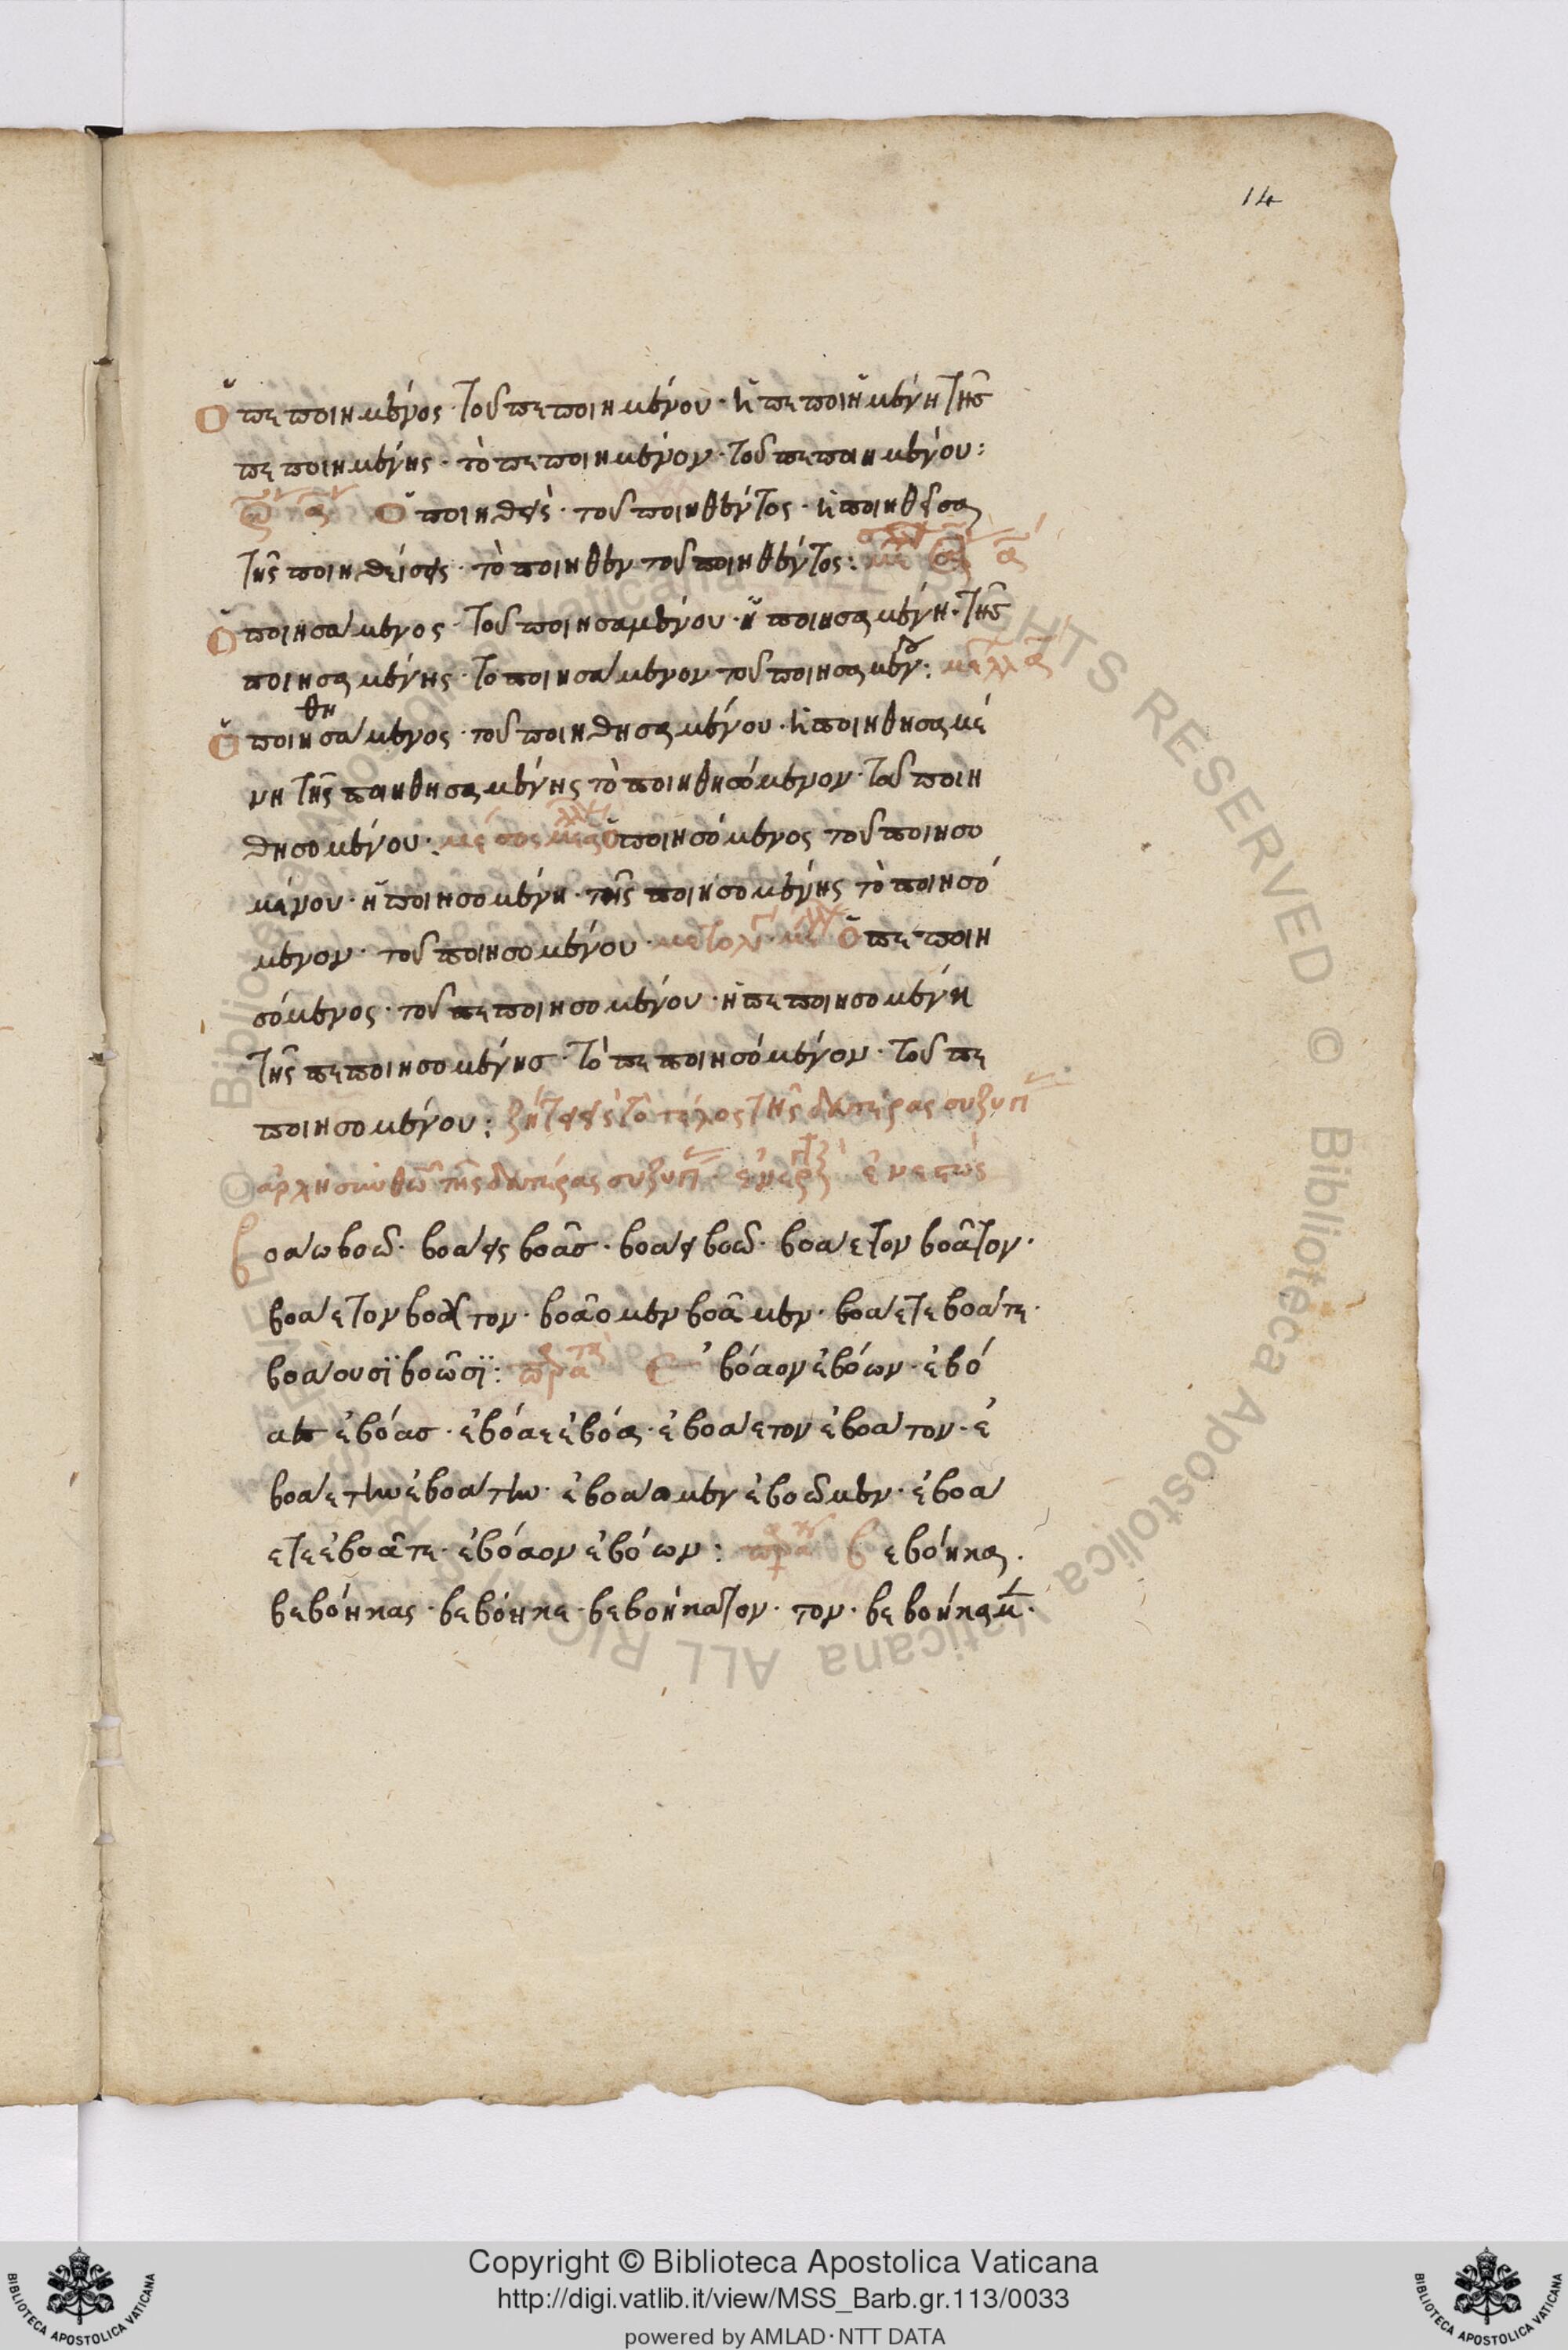 14
Ὁ πεποιημένος· τοῦ πεποιημένου· ἡ πεποιημένη τῆς
πεποιημένης· τὸ πεποιημένον· τοῦ πεποιημένου:
Ὁ ποιηθεὶς· τοῦ ποιηθέντος· ἡ ποιηθεῖσα
τῆς ποιηθείσης· τὸ ποιηθὲν τοῦ ποιηθέντος:
Ὁ ποιησάμενος· τοῦ ποιησαμένου· ἡ ποιησαμένη· τῆς
ποιησαμένης· το ποιησάμενον τοῦ ποιησαμένου:
Ὁ ποιηθησάμενος· τοῦ ποιηθησαμένου· ἡ ποιηθησαμέ
νη τῆς ποιηθησαμένης τὸ ποιηθησόμενον· τοῦ ποιη
θησομένου· ὁ ποιησόμενος τοῦ ποιησο
μένου· ἡ ποιησομένη· τῆς ποιησομένης τὸ ποιησό
μενον· τοῦ ποιησομένου· ὁ πεποιη
σόμενος· τοῦ πεποιησομένου· ἡ πεποιησομένη
τῆς πεποιησομένης· τὸ πεποιησόμενον· τοῦ πε
ποιησομένου: τὸ τέλος τῆς δευτέρας συζυγ
ἀρχὴ σὺν θῶ τῆς δευτέρας συζυγ ἐνεστώς
βοάω βοῶ· βοάεις βοᾶς· βοάει βοᾶ· βοάετον βοᾶτον·
βοάετον βοᾶτον· βοάομεν βοῶμεν· βοάετε βοάτε·
βοάουσϊ βοῶσϊ: ἐβόαον ἐβόων· ἐβό
αες ἐβόας· ἐβόαε ἐβόα· ἐβοάετον ἐβοάτον· ἐ
βοαέτην ἐβοάτην· ἐβοάομεν ἐβοῶμεν· ἐβοά
ετε ἐβοᾶτε· ἐβόαον ἐβόων: βεβόηκα·
βεβόηκας· βεβόηκε· βεβοήκατον· τον· βεβοήκαμ·
Copyright © Biblioteca Apostolica Vaticana
http://digi.vatlib.it/view/MSS_Barb.gr.113/0033
powered by AMLAD·NTT DATA
BIBLIOTECA APOSTOLICA VATICANA
BIBLIOTECA APOSTOLICA VATICANA
© Biblioteca Apostolica Vaticana ALL RIGHTS RESERVED